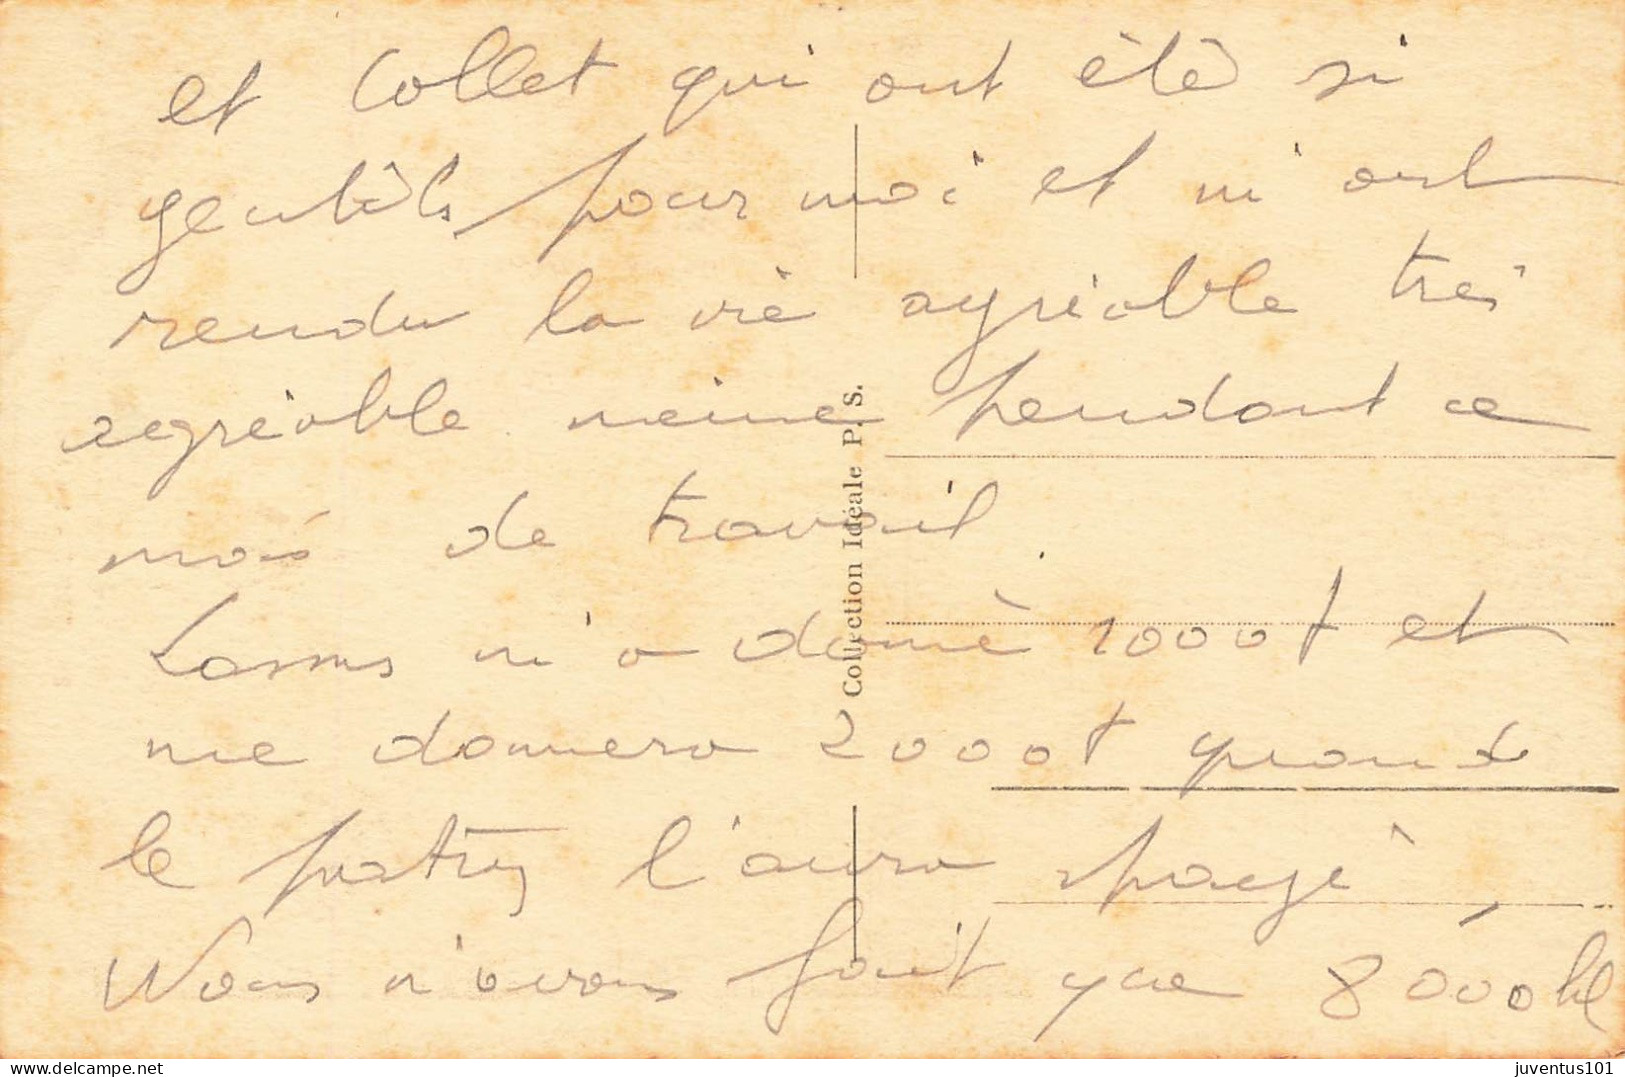 et Collet qui ont été si
gentils pour moi et m'ont
rendu la vie agréable très
agréable même pendant ce
mois de travail.
m'a donné 1000f et
me donnera 2000f quand
le patron l'aura payé,
Nous n'avons fait que 8000hl
Collection Idéale P. S.
delcampe.net
juventus101